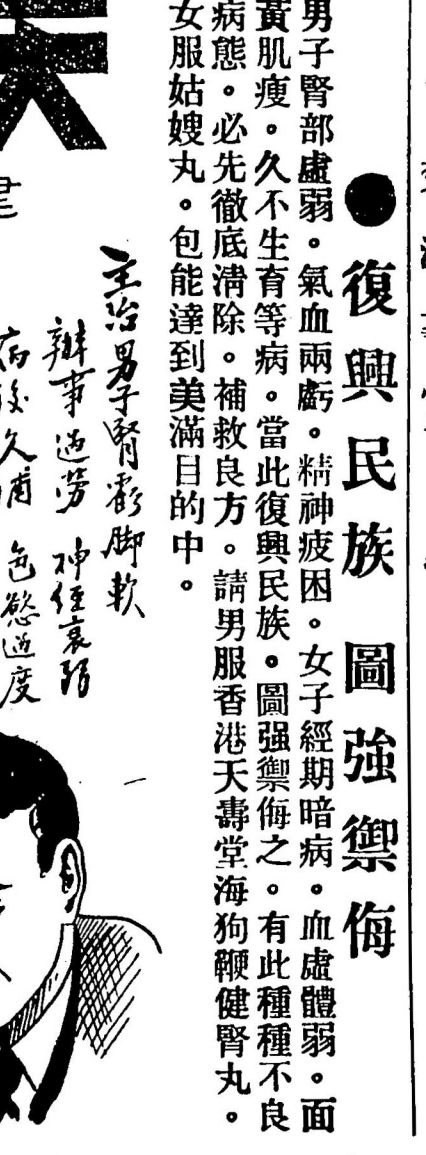 ●復興民族 圖強禦侮
男子腎部虛弱。氣血兩虧。精神疲困。女子經期暗病。血虛體弱。面
黃肌瘦。久不生育等病。當此復興民族。圖强禦侮之。有此種種不良
病態。必先徹底清除。補救良方。請男服香港天壽堂海狗鞭健腎丸。
女服姑嫂丸。包能達到美滿目的中。
主治男子腎虧脚軟
辦事過劳 神經衰弱
病後久 色慾過度